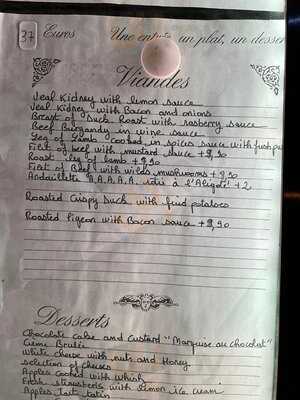 37 Euros Une entrée, un plat, un desser
Viandes
Veal Kidney with lemon sauce
Veal Kidney with Bacon and onions
Breast of Duck Roast with rasberry sauce
Beef Burgandy in wine sauce
Leg of Lamb cooked in spices sauce with
Filet of beef with mustard sauce + 9,50
Roast leg of lamb + 9,50
Filet of Beef with wilds mushrooms + 9,50
Andouillette A.A.A.A.A. à l'Aligoté + 2
Roasted Crispy Duck with fried potatoes
Roasted Pigeon with Bacon sauce + 9,50
Desserts
Chocolate cake and Custard "Marquise au chocolat"
Crème Brulée
White cheese with nuts and Honey
Selection of cheeses
Apples cooked with whisky
Fresh strawberries with lemon ice cream
Apples tart tatin